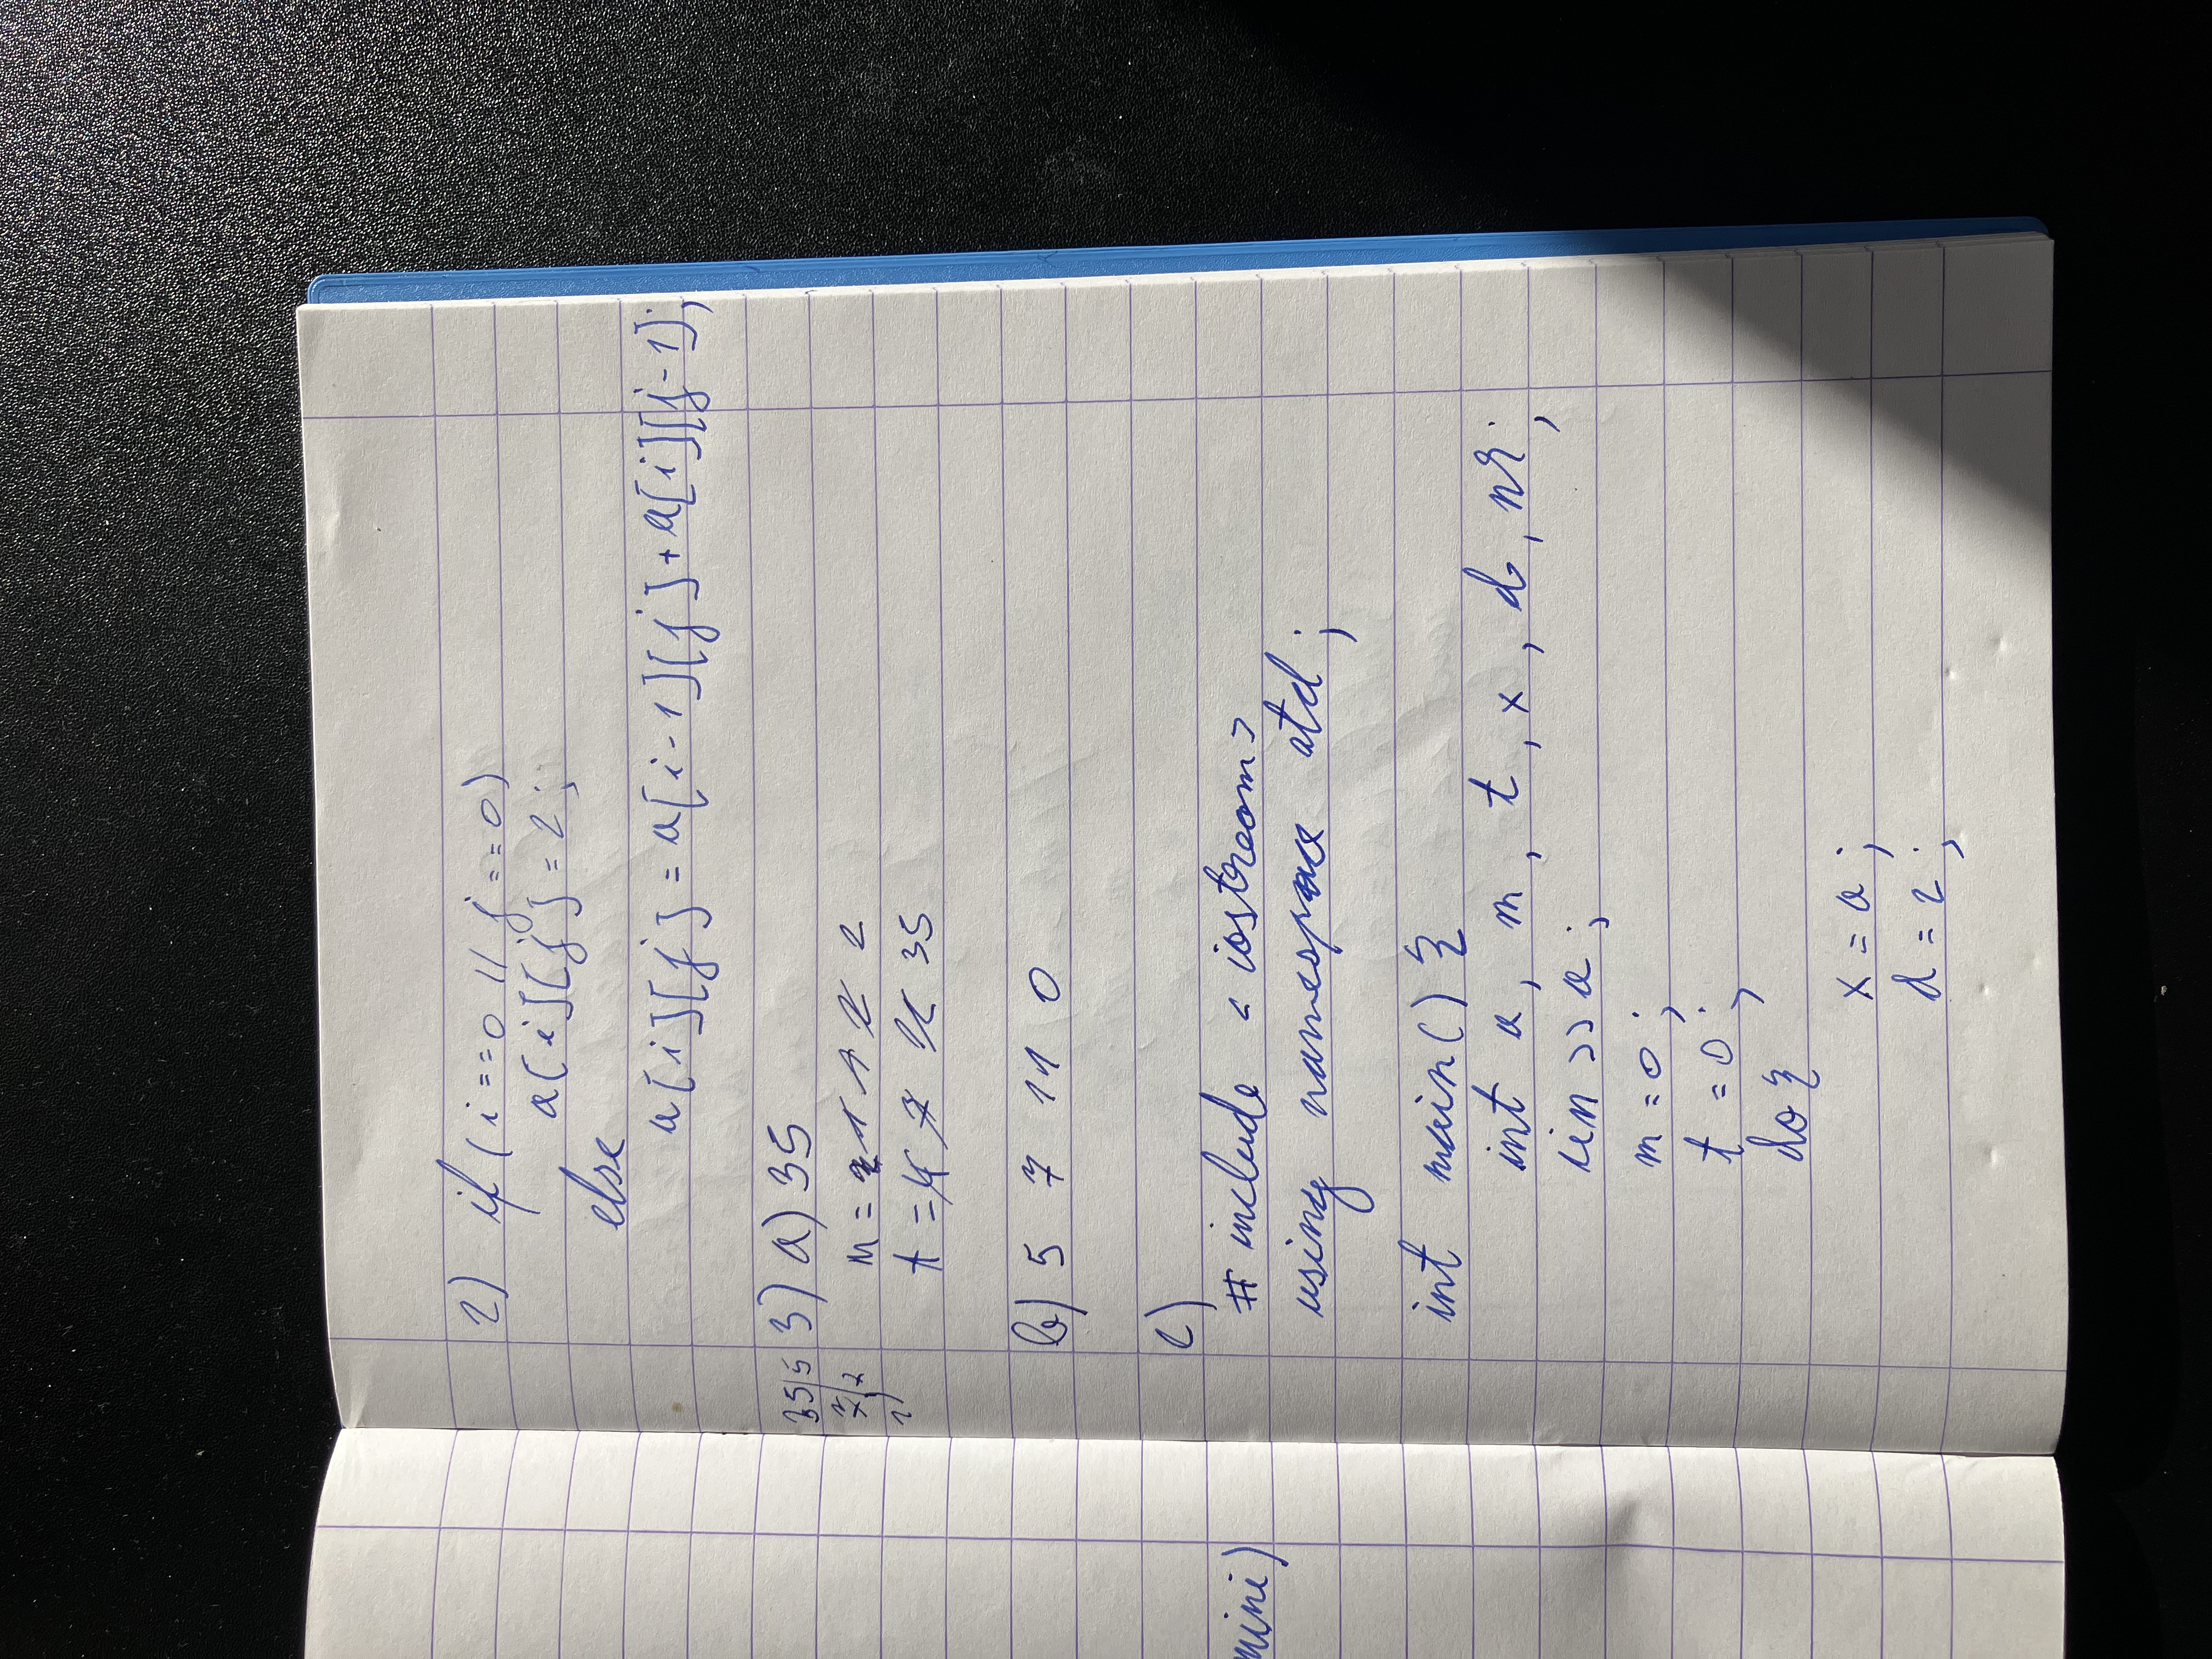 mini)
2) if (i==0 || j==0)
a[i][j]=2;
else
a[i][j]=a[i-1][j]+a[i][j-1];
35|5 3) a) 35
7|7 m = 2 1 1 2 2
1| t = 7 35
b) 5 7 11 0
c)
#include <iostream>
using namespace std;
int main() {
int a, m, t, x, d, nr;
cin >> a;
m = 0;
t = 0;
do {
x = a;
d = 2;